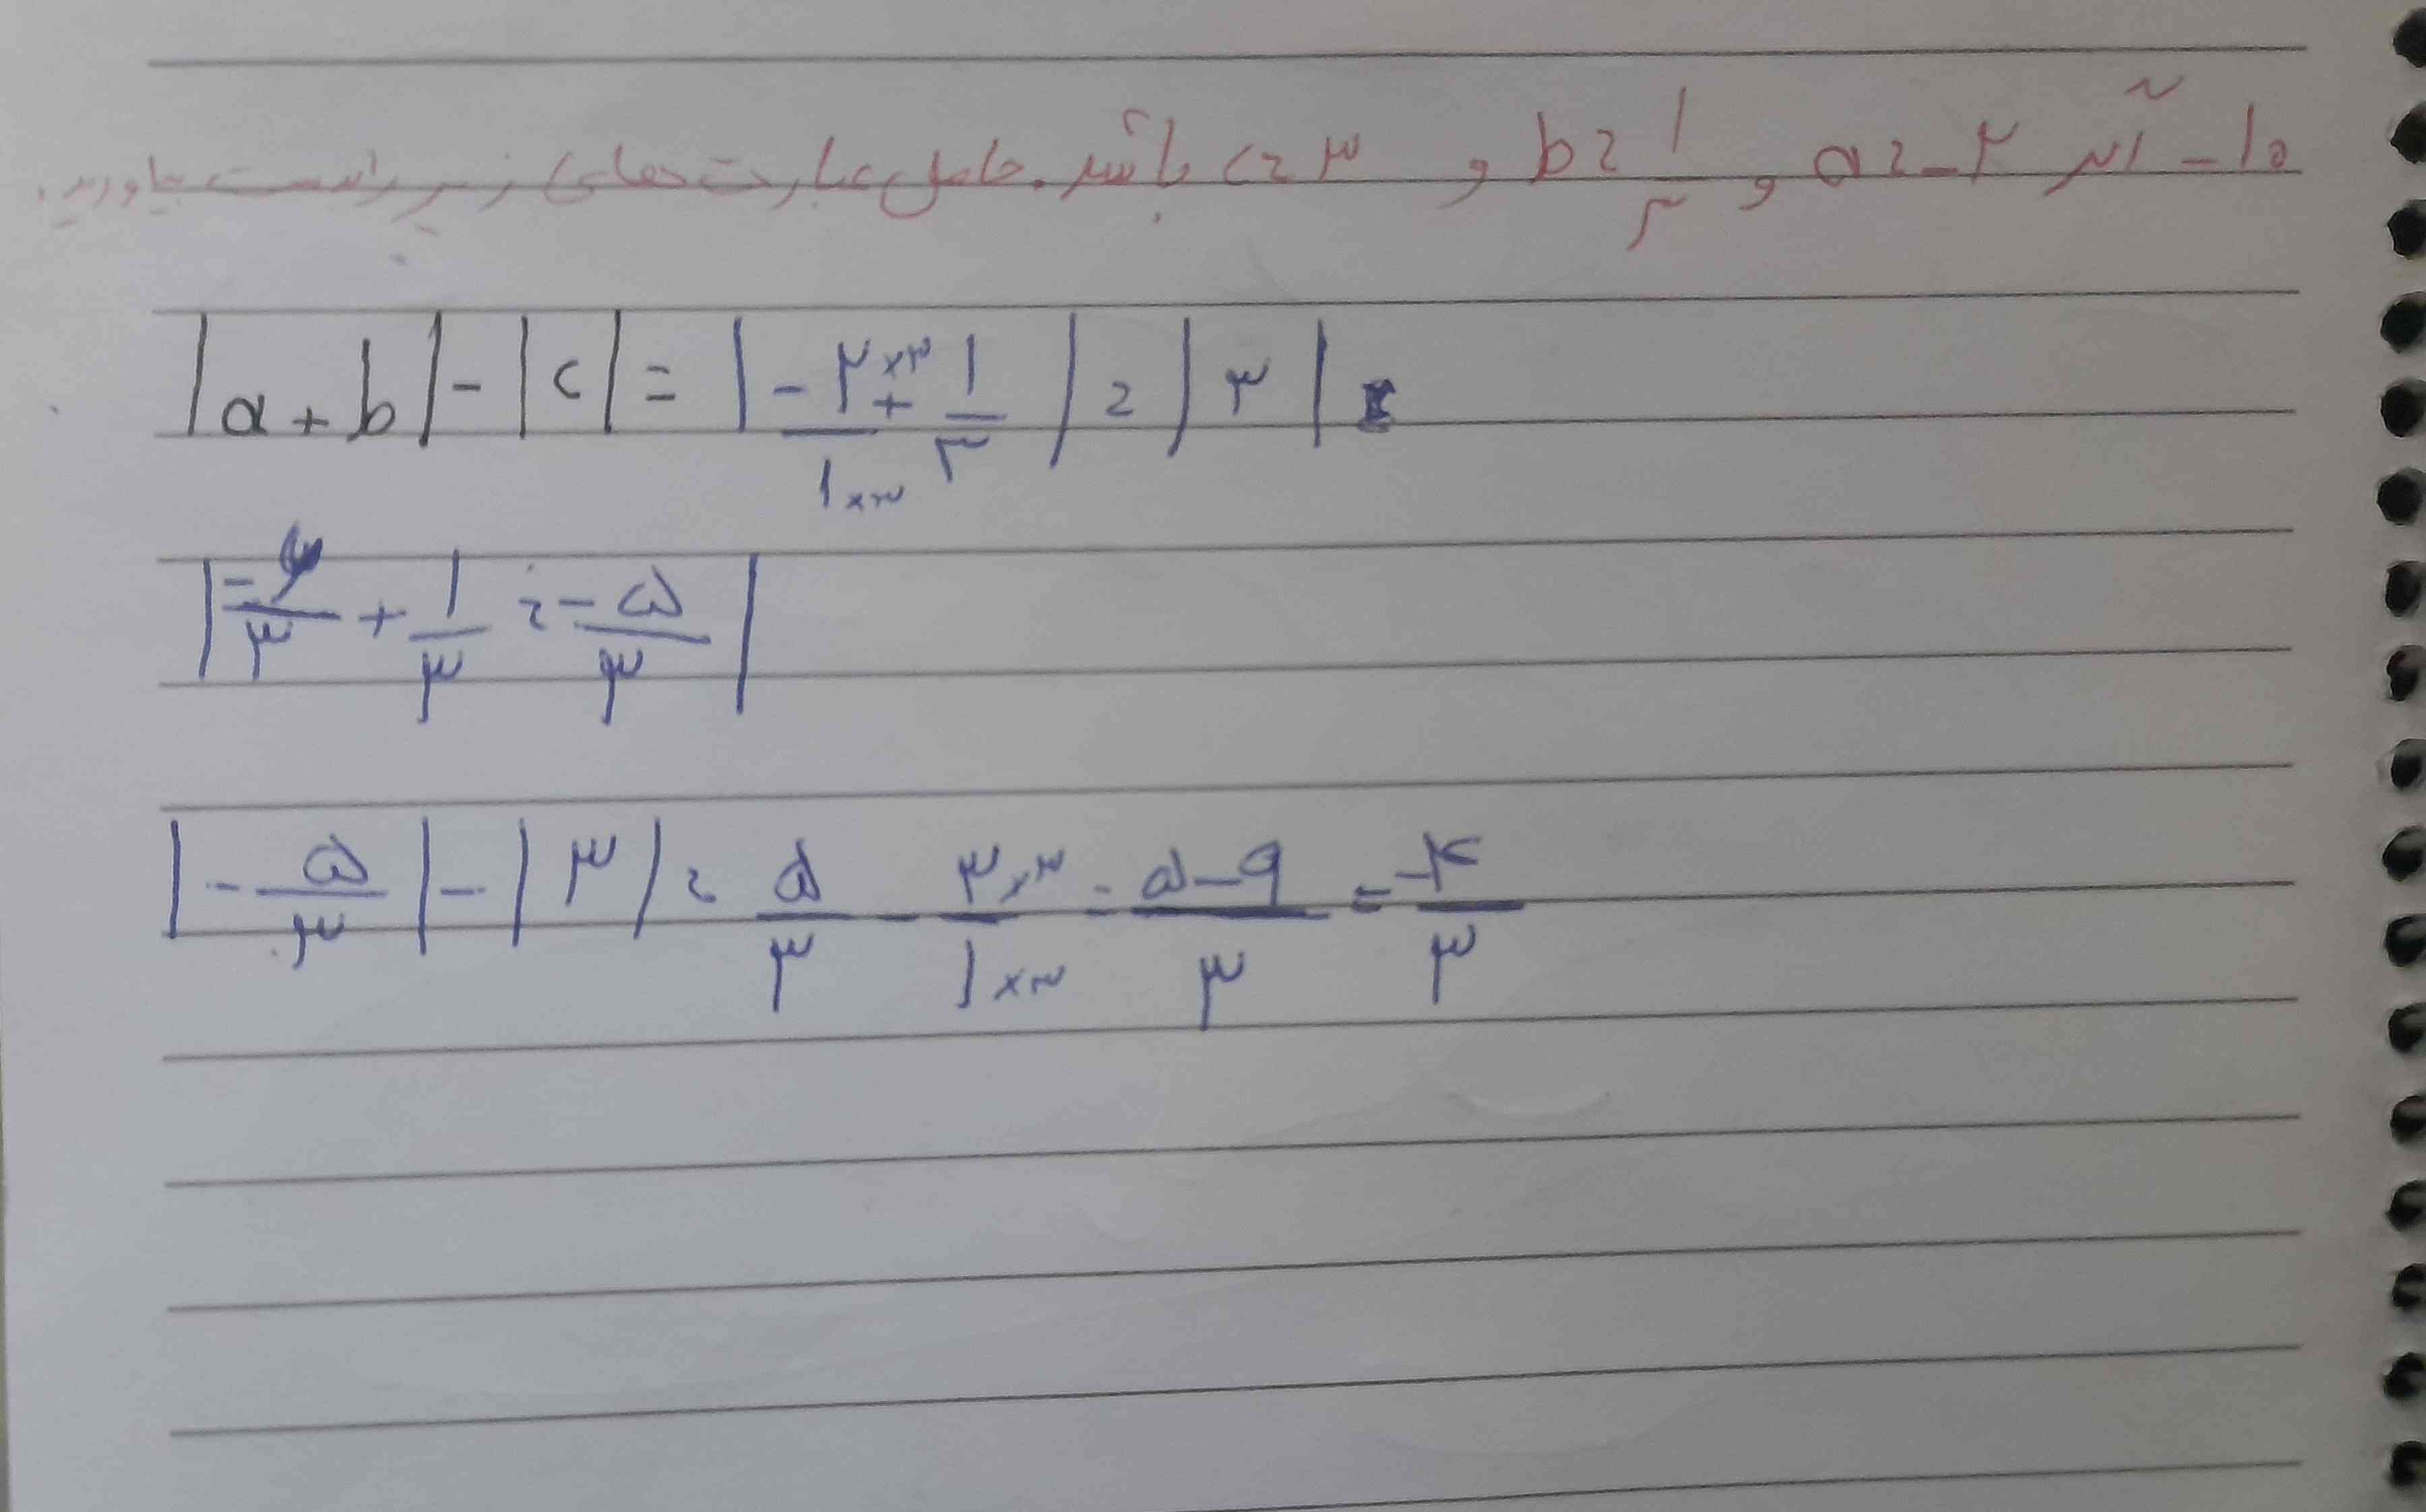 ۱۰- اگر a = -۲ و b = ۱/۳ و c = ۳ باشد. حاصل عبارت های زیر را بدست بیاورید.
|a + b| - |c| = | -۲×۳/۱×۳ + ۱/۳ | = |۳|
| -۶/۳ + ۱/۳ = -۵/۳ |
| -۵/۳ | - |۳| = ۵/۳ - ۳×۳/۱×۳ = ۵-۹/۳ = -۴/۳